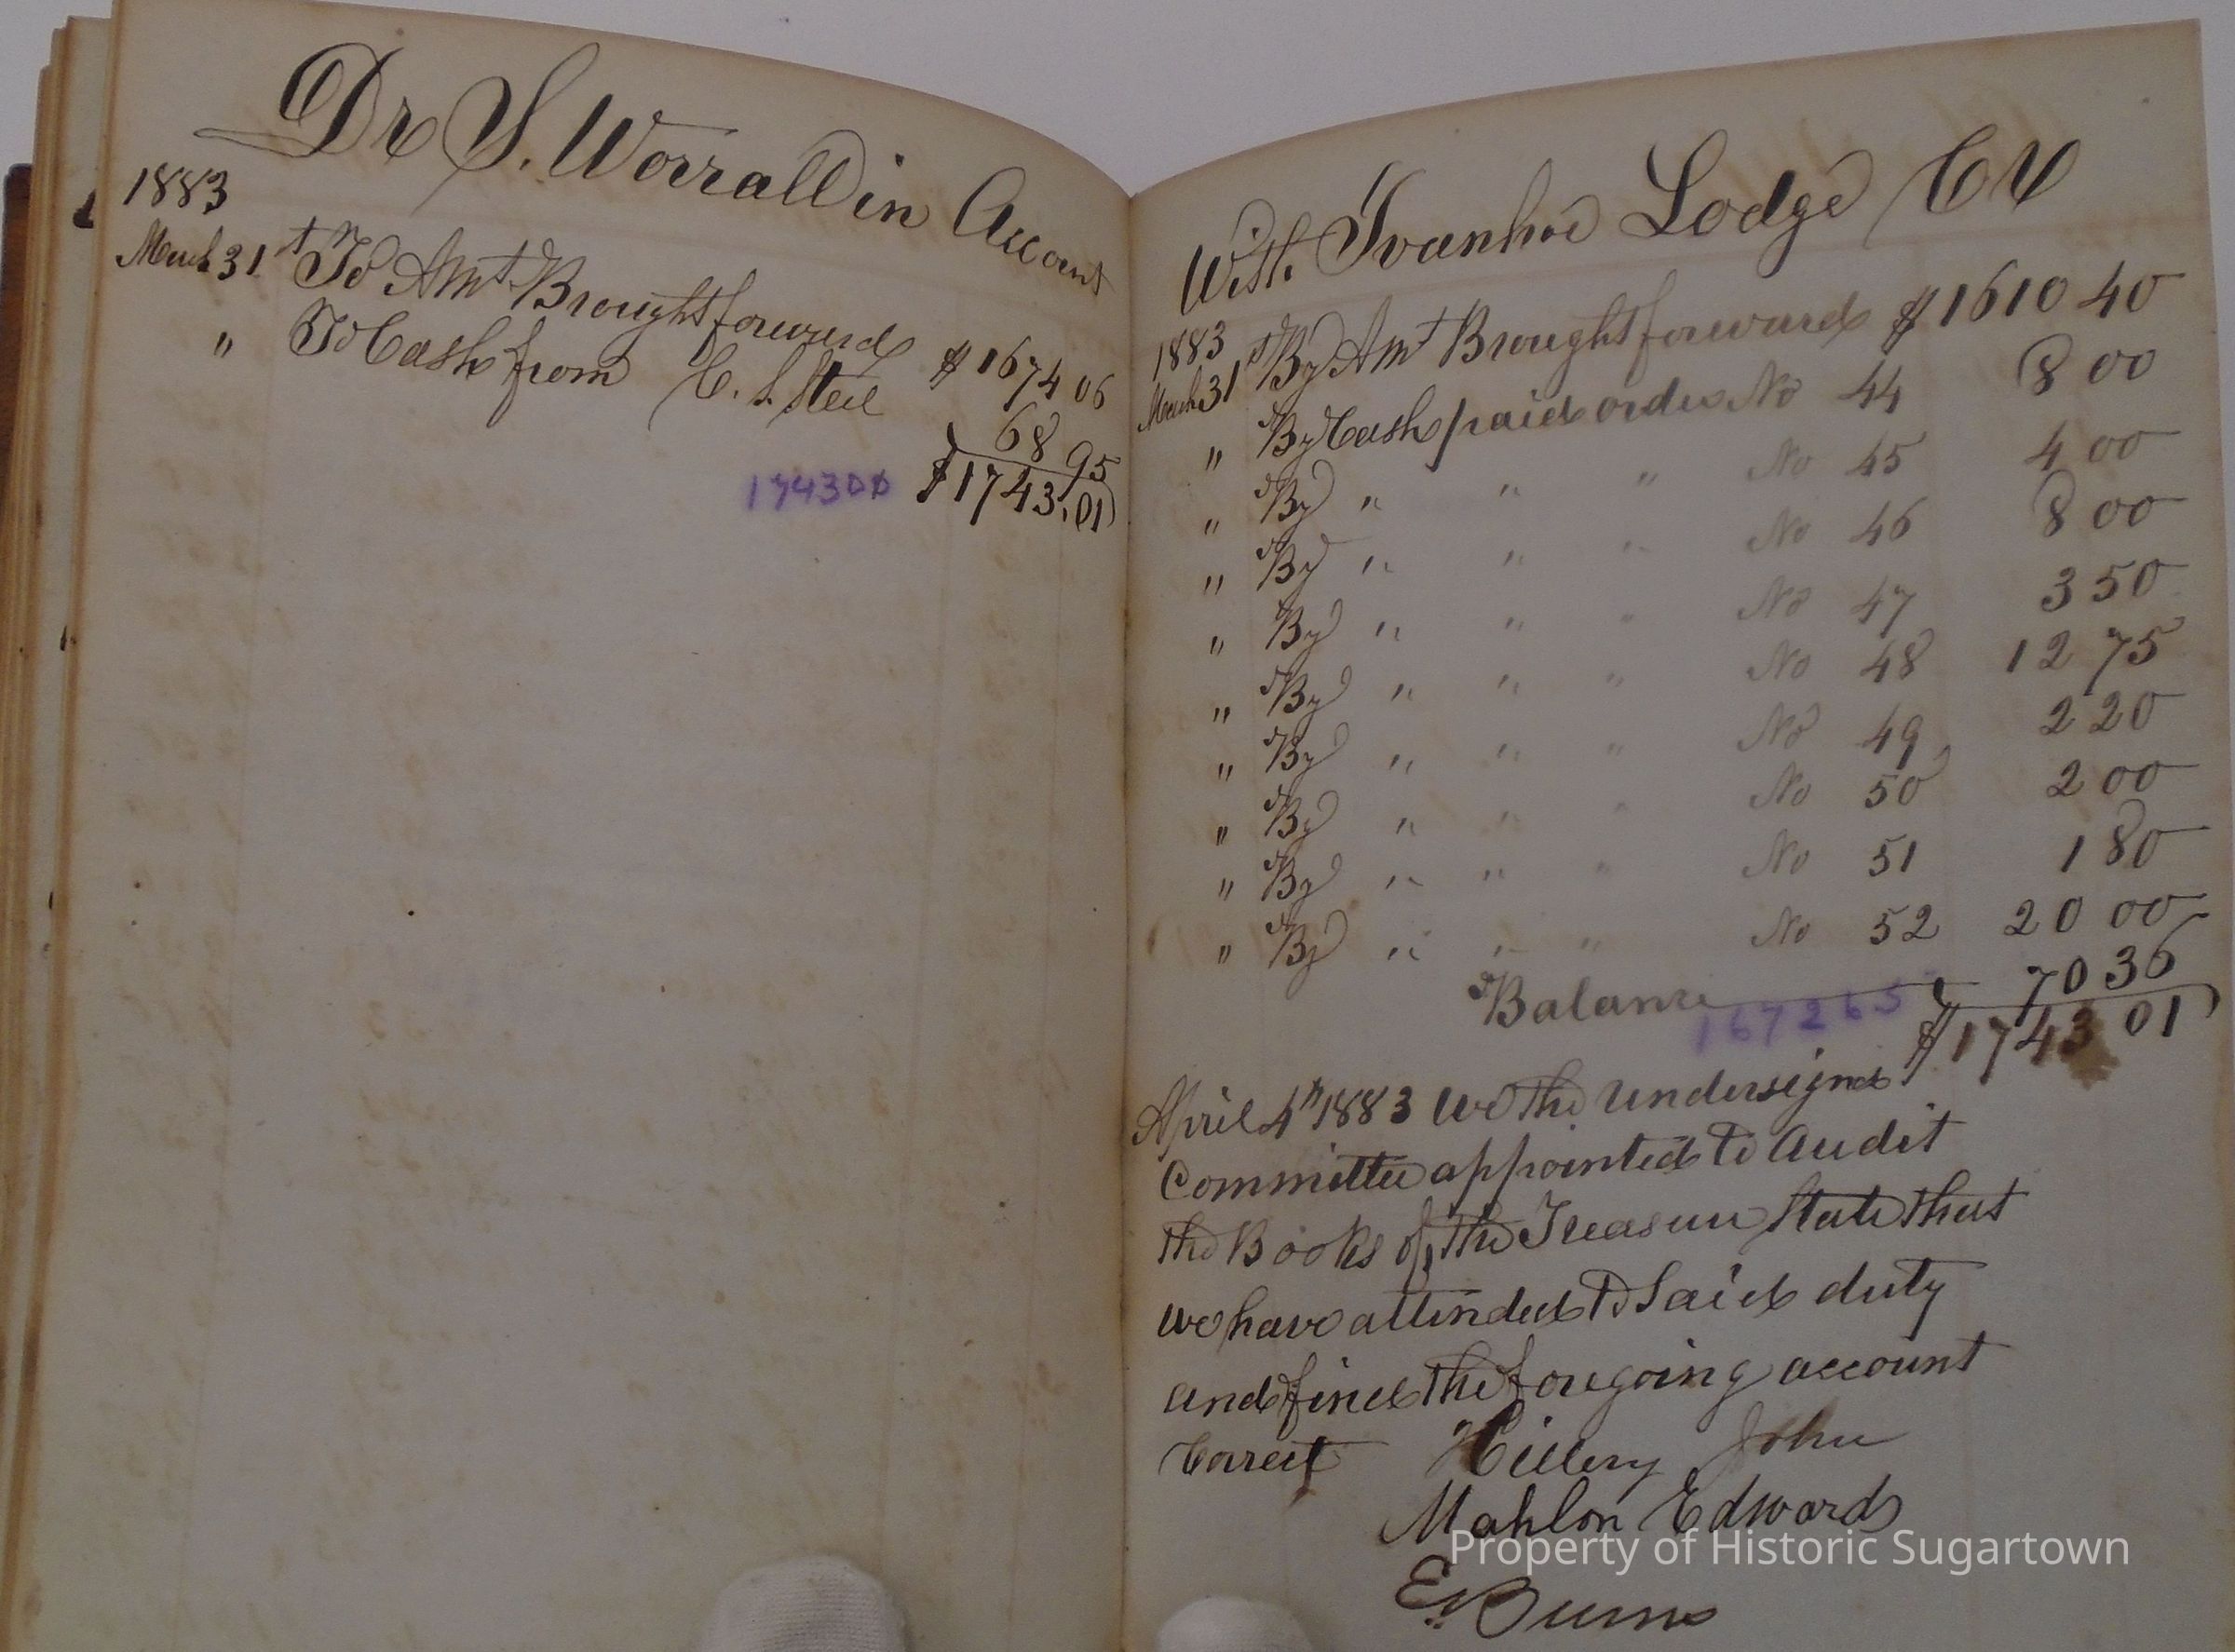 Dr S. Worrall in Account
1883
March 31st To Amt Brought forward $1674 06
" To Cash from C. S. Steil 68 95
174300 $1743.01
With Ivanhoe Lodge Cr
1883
March 31st By Amt Brought forward $1610 40
" By Cash paid order No 44 8 00
" By " " " No 45 4 00
" By " " " No 46 8 00
" By " " " No 47 3 50
" By " " " No 48 12 75
" By " " " No 49 2 20
" By " " " No 50 2 00
" By " " " No 51 1 80
" By " " " No 52 20 00
Balance 70 36
167265 $1743 01
April 4th 1883 We the undersigned
Committee appointed to Audit
the Books of the Treasurer State that
we have attended to Said duty
and find the foregoing account
Correct Hillery John
Mahlon Edwards
E. Burns
Property of Historic Sugartown